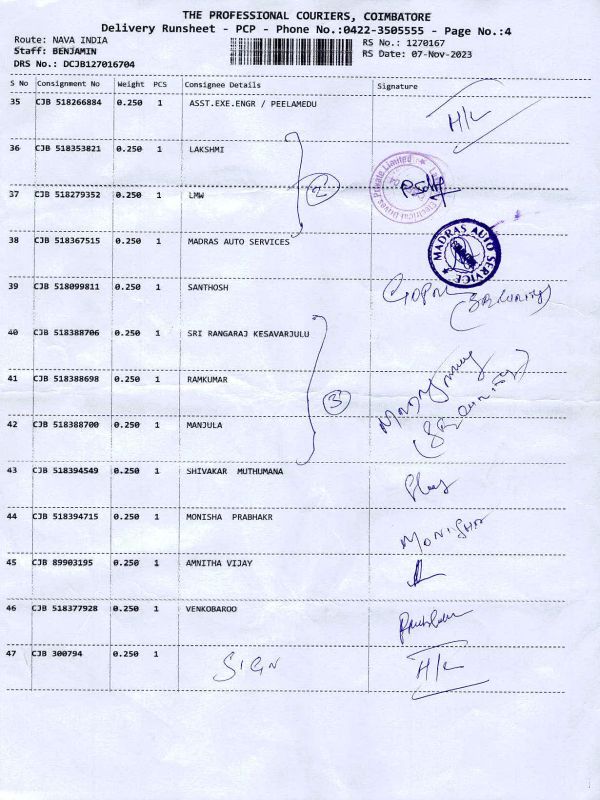 THE PROFESSIONAL COURIERS, COIMBATORE
Delivery Runsheet - PCP - Phone No.:0422-3505555 - Page No.:4
Route: NAVA INDIA RS No.: 1270167
Staff: BENJAMIN RS Date: 07-Nov-2023
DRS No.: DCJB127016704
S No Consignment No Weight PCS Consignee Details Signature
35 CJB 518266884 0.250 1 ASST.EXE.ENGR / PEELAMEDU H/L
36 CJB 518353821 0.250 1 LAKSHMI
37 CJB 518279352 0.250 1 LMW 2
Private Limited
38 CJB 518367515 0.250 1 MADRAS AUTO SERVICES MADRAS AUTO SERVICE
39 CJB 518099811 0.250 1 SANTHOSH GOPAL
(SECURITY)
40 CJB 518388706 0.250 1 SRI RANGARAJ KESAVARJULU
41 CJB 518388698 0.250 1 RAMKUMAR 3
42 CJB 518388700 0.250 1 MANJULA (SECURITY)
43 CJB 518394549 0.250 1 SHIVAKAR MUTHUMANA
44 CJB 518394715 0.250 1 MONISHA PRABHAKR MONISHA
45 CJB 89903195 0.250 1 AMNITHA VIJAY
46 CJB 518377928 0.250 1 VENKOBAROO
47 CJB 300794 0.250 1 SIGN H/L